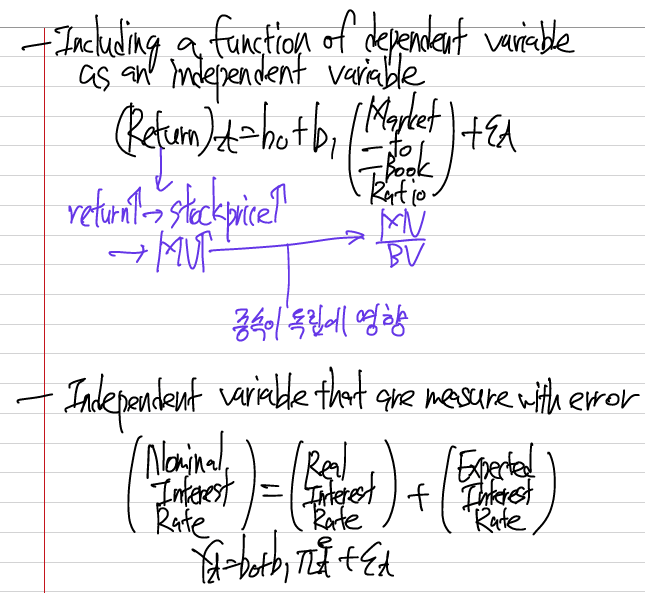 — Including a function of dependent variable
as an independent variable
(Return)t = b0 + b1 (Market - to - Book Ratio) + εt
return↑ → stock price↑
→ MV↑ → MV/BV
종속이 독립에 영향
— Independent variable that are measure with error
(Nominal Interest Rate) = (Real Interest Rate) + (Expected Interest Rate)
rt = b0 + b1 πt^e + εt